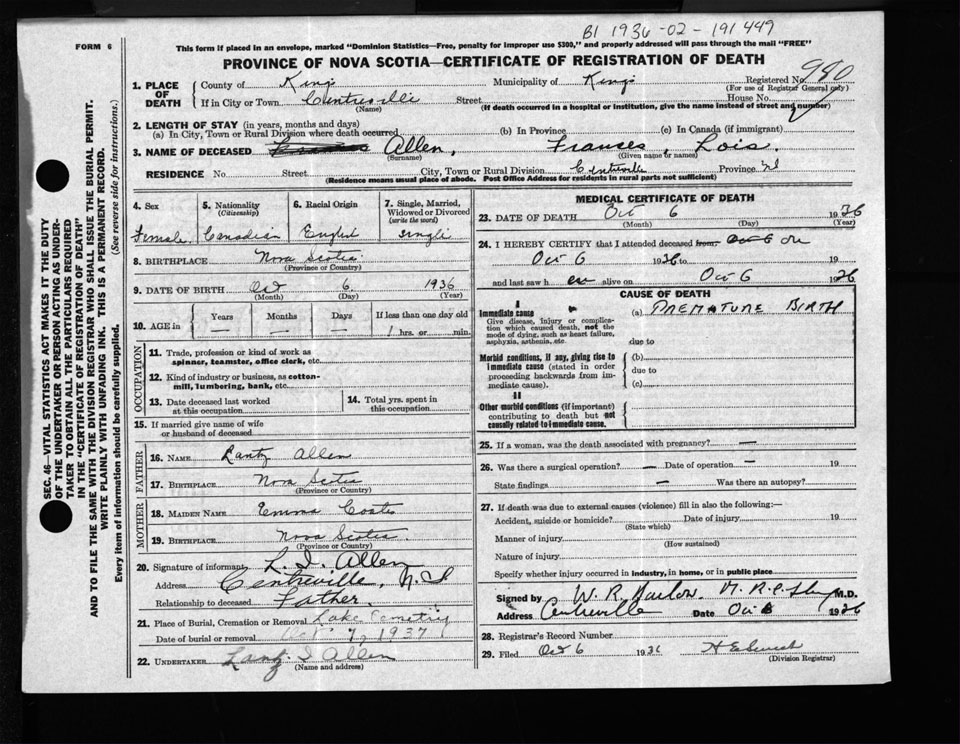 BI 1936-02-191449
FORM 6
This form if placed in an envelope, marked "Dominion Statistics—Free, penalty for improper use $300," and properly addressed will pass through the mail "FREE"
PROVINCE OF NOVA SCOTIA—CERTIFICATE OF REGISTRATION OF DEATH
1. PLACE OF DEATH
County of Kings Municipality of Kings Registered No. 980
(For use of Registrar General only)
If in City or Town Centreville Street House No.
(Name) (If death occurred in a hospital or institution, give the name instead of street and number)
2. LENGTH OF STAY (in years, months and days)
(a) In City, Town or Rural Division where death occurred (b) In Province (c) In Canada (if immigrant)
3. NAME OF DECEASED Allen, Frances, Lois.
(Surname) (Given name or names)
RESIDENCE No. Street City, Town or Rural Division Centreville Province NS
(Residence means usual place of abode. Post Office Address for residents in rural parts not sufficient)
4. Sex Female
5. Nationality (Citizenship) Canadian
6. Racial Origin English
7. Single, Married, Widowed or Divorced (write the word) Single
8. BIRTHPLACE Nova Scotia
(Province or Country)
9. DATE OF BIRTH Oct 6 1936
(Month) (Day) (Year)
10. AGE in Years Months Days If less than one day old
— — — 1 hrs. or min.
OCCUPATION
11. Trade, profession or kind of work as spinner, teamster, office clerk, etc.
12. Kind of industry or business, as cotton-mill, lumbering, bank, etc.
13. Date deceased last worked at this occupation
14. Total yrs. spent in this occupation
15. If married give name of wife or husband of deceased
FATHER
16. NAME Lantz Allen
17. BIRTHPLACE Nova Scotia
(Province or Country)
MOTHER
18. MAIDEN NAME Emma Coates
19. BIRTHPLACE Nova Scotia.
(Province or Country)
20. Signature of informant L. I. Allen
Address Centreville, N.S
Relationship to deceased Father
21. Place of Burial, Cremation or Removal Lake Cemetry
Date of burial or removal Oct 7, 1937
22. UNDERTAKER Lantz I Allen
(Name and address)
MEDICAL CERTIFICATE OF DEATH
23. DATE OF DEATH Oct 6 1936
(Month) (Day) (Year)
24. I HEREBY CERTIFY that I attended deceased from on
Oct 6 1936 to 19
and last saw h er alive on Oct 6 1936
CAUSE OF DEATH
I
Immediate cause
Give disease, injury or complication which caused death, not the mode of dying, such as heart failure, asphyxia, asthenia, etc.
(a) PREMATURE BIRTH
due to
Morbid conditions, if any, giving rise to immediate cause (stated in order proceeding backwards from immediate cause).
(b)
due to
(c)
II
Other morbid conditions (if important) contributing to death but not causally related to immediate cause.
25. If a woman, was the death associated with pregnancy? —
26. Was there a surgical operation? — Date of operation — 19
State findings — Was there an autopsy?
27. If death was due to external causes (violence) fill in also the following:—
Accident, suicide or homicide? Date of injury 19
(State which)
Manner of injury
(How sustained)
Nature of injury
Specify whether injury occurred in industry, in home, or in public place
Signed by W. R. M.D.
Address Centreville Date Oct 6 1936
28. Registrar's Record Number
29. Filed Oct 6 1936
(Division Registrar)
SEC. 46—VITAL STATISTICS ACT MAKES IT THE DUTY
OF THE UNDERTAKER OR PERSON ACTING AS UNDER-
TAKER TO OBTAIN ALL THE PARTICULARS REQUIRED
IN THE "CERTIFICATE OF REGISTRATION OF DEATH"
AND TO FILE THE SAME WITH THE DIVISION REGISTRAR WHO SHALL ISSUE THE BURIAL PERMIT.
WRITE PLAINLY WITH UNFADING INK. THIS IS A PERMANENT RECORD.
Every item of information should be carefully supplied. (See reverse side for instructions.)